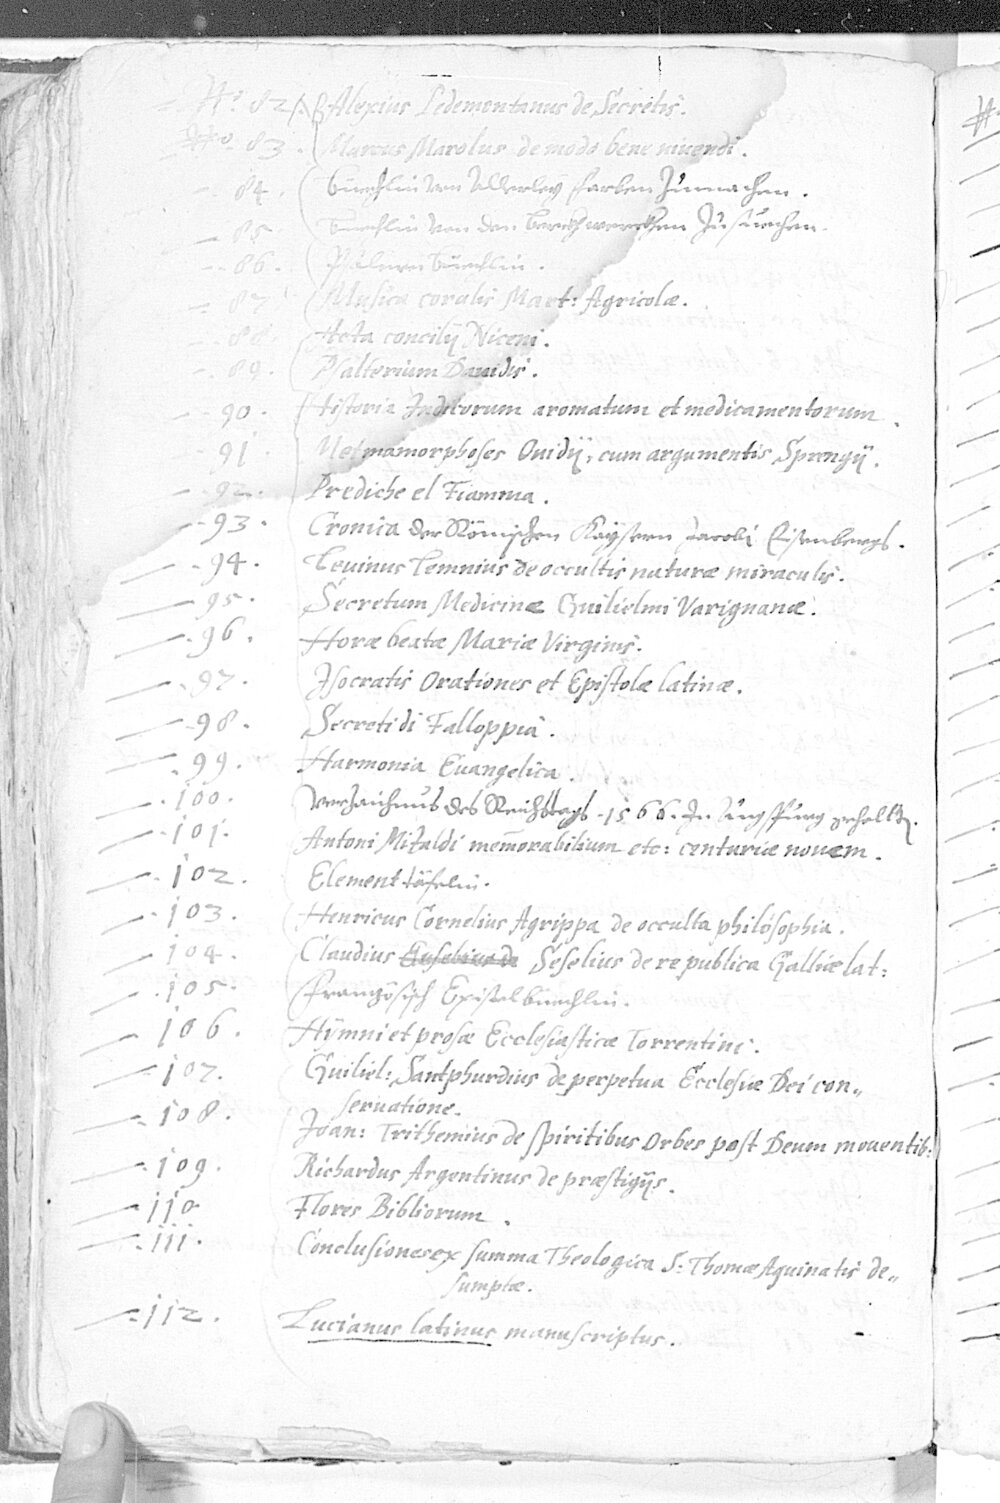 N° 82 Alexius Pedemontanus de Secretis.
N° 83. Marcus Marolus de modo bene viuendi.
84. Büechlin von Allerley farben Zuemachen.
85 Buechlin von den Berckhwerckhen Zu suechen.
86. Psalmen büechlin.
87 Musica coralis Mart: Agricolæ.
88. Acta concilij Niceni.
89. Psalterium Dauidis.
90. Historia Indicorum aromatum et medicamentorum.
91. Metmamorphoses Ouidij, cum argumentis Sprengij.
92. Prediche el Fiamma.
93. Cronica der Römischen Kaysern Jacobi Eisenbergs.
94. Leuinus Lemnius de occultis naturæ miraculis.
95. Secretum Medicinæ Guilielmi Varignanæ.
96. Horæ beatæ Mariæ Virginis.
97. Isocratis Orationes et Epistolæ latinæ.
98. Secreti di Falloppia.
99. Harmonia Euangelica.
100. Verzaichnus des Reichstags 1566. In Augspurg gehallten.
101. Antoni Mizaldi memorabilium etc: centuriæ nouem.
102. Element täfelin.
103. Henricus Cornelius Agrippa de occulta philosophia.
104. Claudius Seselius de republica Galliæ lat:
105. Französisch Epistelbüechlin.
106. Hÿmni et prosæ Ecclesiasticæ Torrentini.
107. Guiliel: Santphurdius de perpetua Ecclesiæ Dei con„
seruatione.
108. Joan: Trithemius de spiritibus Orbes post Deum mouentib:
109. Richardus Argentinus de præstigijs.
110 Flores Bibliorum.
111. Conclusiones ex summa Theologica S: Thomæ Aquinatis de„
sumptæ.
112. Lucianus latinus manuscriptus.